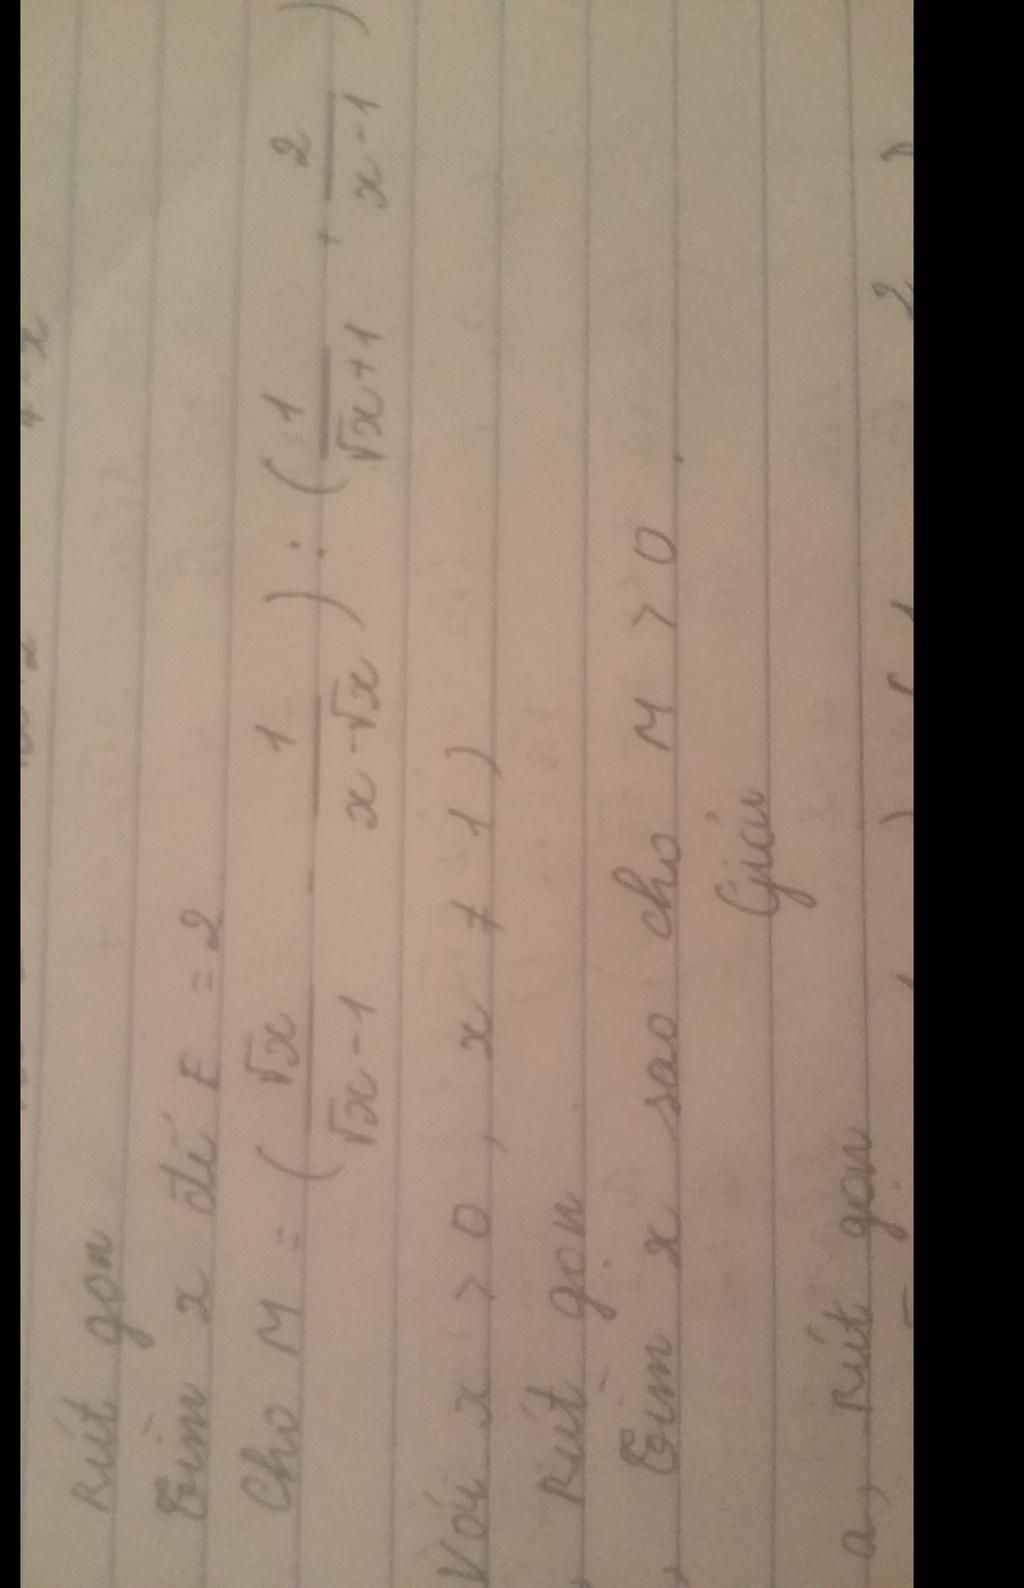 Rút gọn
Tìm x để E = 2
Cho M = (√x/(√x-1) - 1/(x-√x)) : (1/(√x+1) + 2/(x-1))
Với x > 0, x ≠ 1)
Rút gọn
Tìm x sao cho M > 0.
Giải
a, Rút gọn